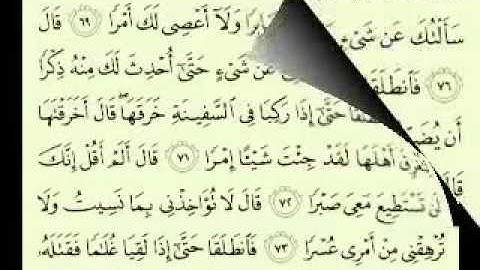 سَأَلْتُكَ عَن شَىْءٍ وَلَآ أَعْصِى لَكَ أَمْرًا ٦٩ قَالَ
٧٦ فَٱنطَلَقَا عَن شَىْءٍ حَتَّىٰٓ أُحْدِثَ لَكَ مِنْهُ ذِكْرًا
أَن حَتَّىٰٓ إِذَا رَكِبَا فِى ٱلسَّفِينَةِ خَرَقَهَا ۖ قَالَ أَخَرَقْتَهَا
أَهْلَهَا لَقَدْ جِئْتَ شَيْـًٔا إِمْرًا ٧١ قَالَ أَلَمْ أَقُلْ إِنَّكَ
لَن تَسْتَطِيعَ مَعِىَ صَبْرًا ٧٢ قَالَ لَا تُؤَاخِذْنِى بِمَا نَسِيتُ وَلَا
تُرْهِقْنِى مِنْ أَمْرِى عُسْرًا ٧٣ فَٱنطَلَقَا حَتَّىٰٓ إِذَا لَقِيَا غُلَـٰمًا فَقَتَلَهُۥ